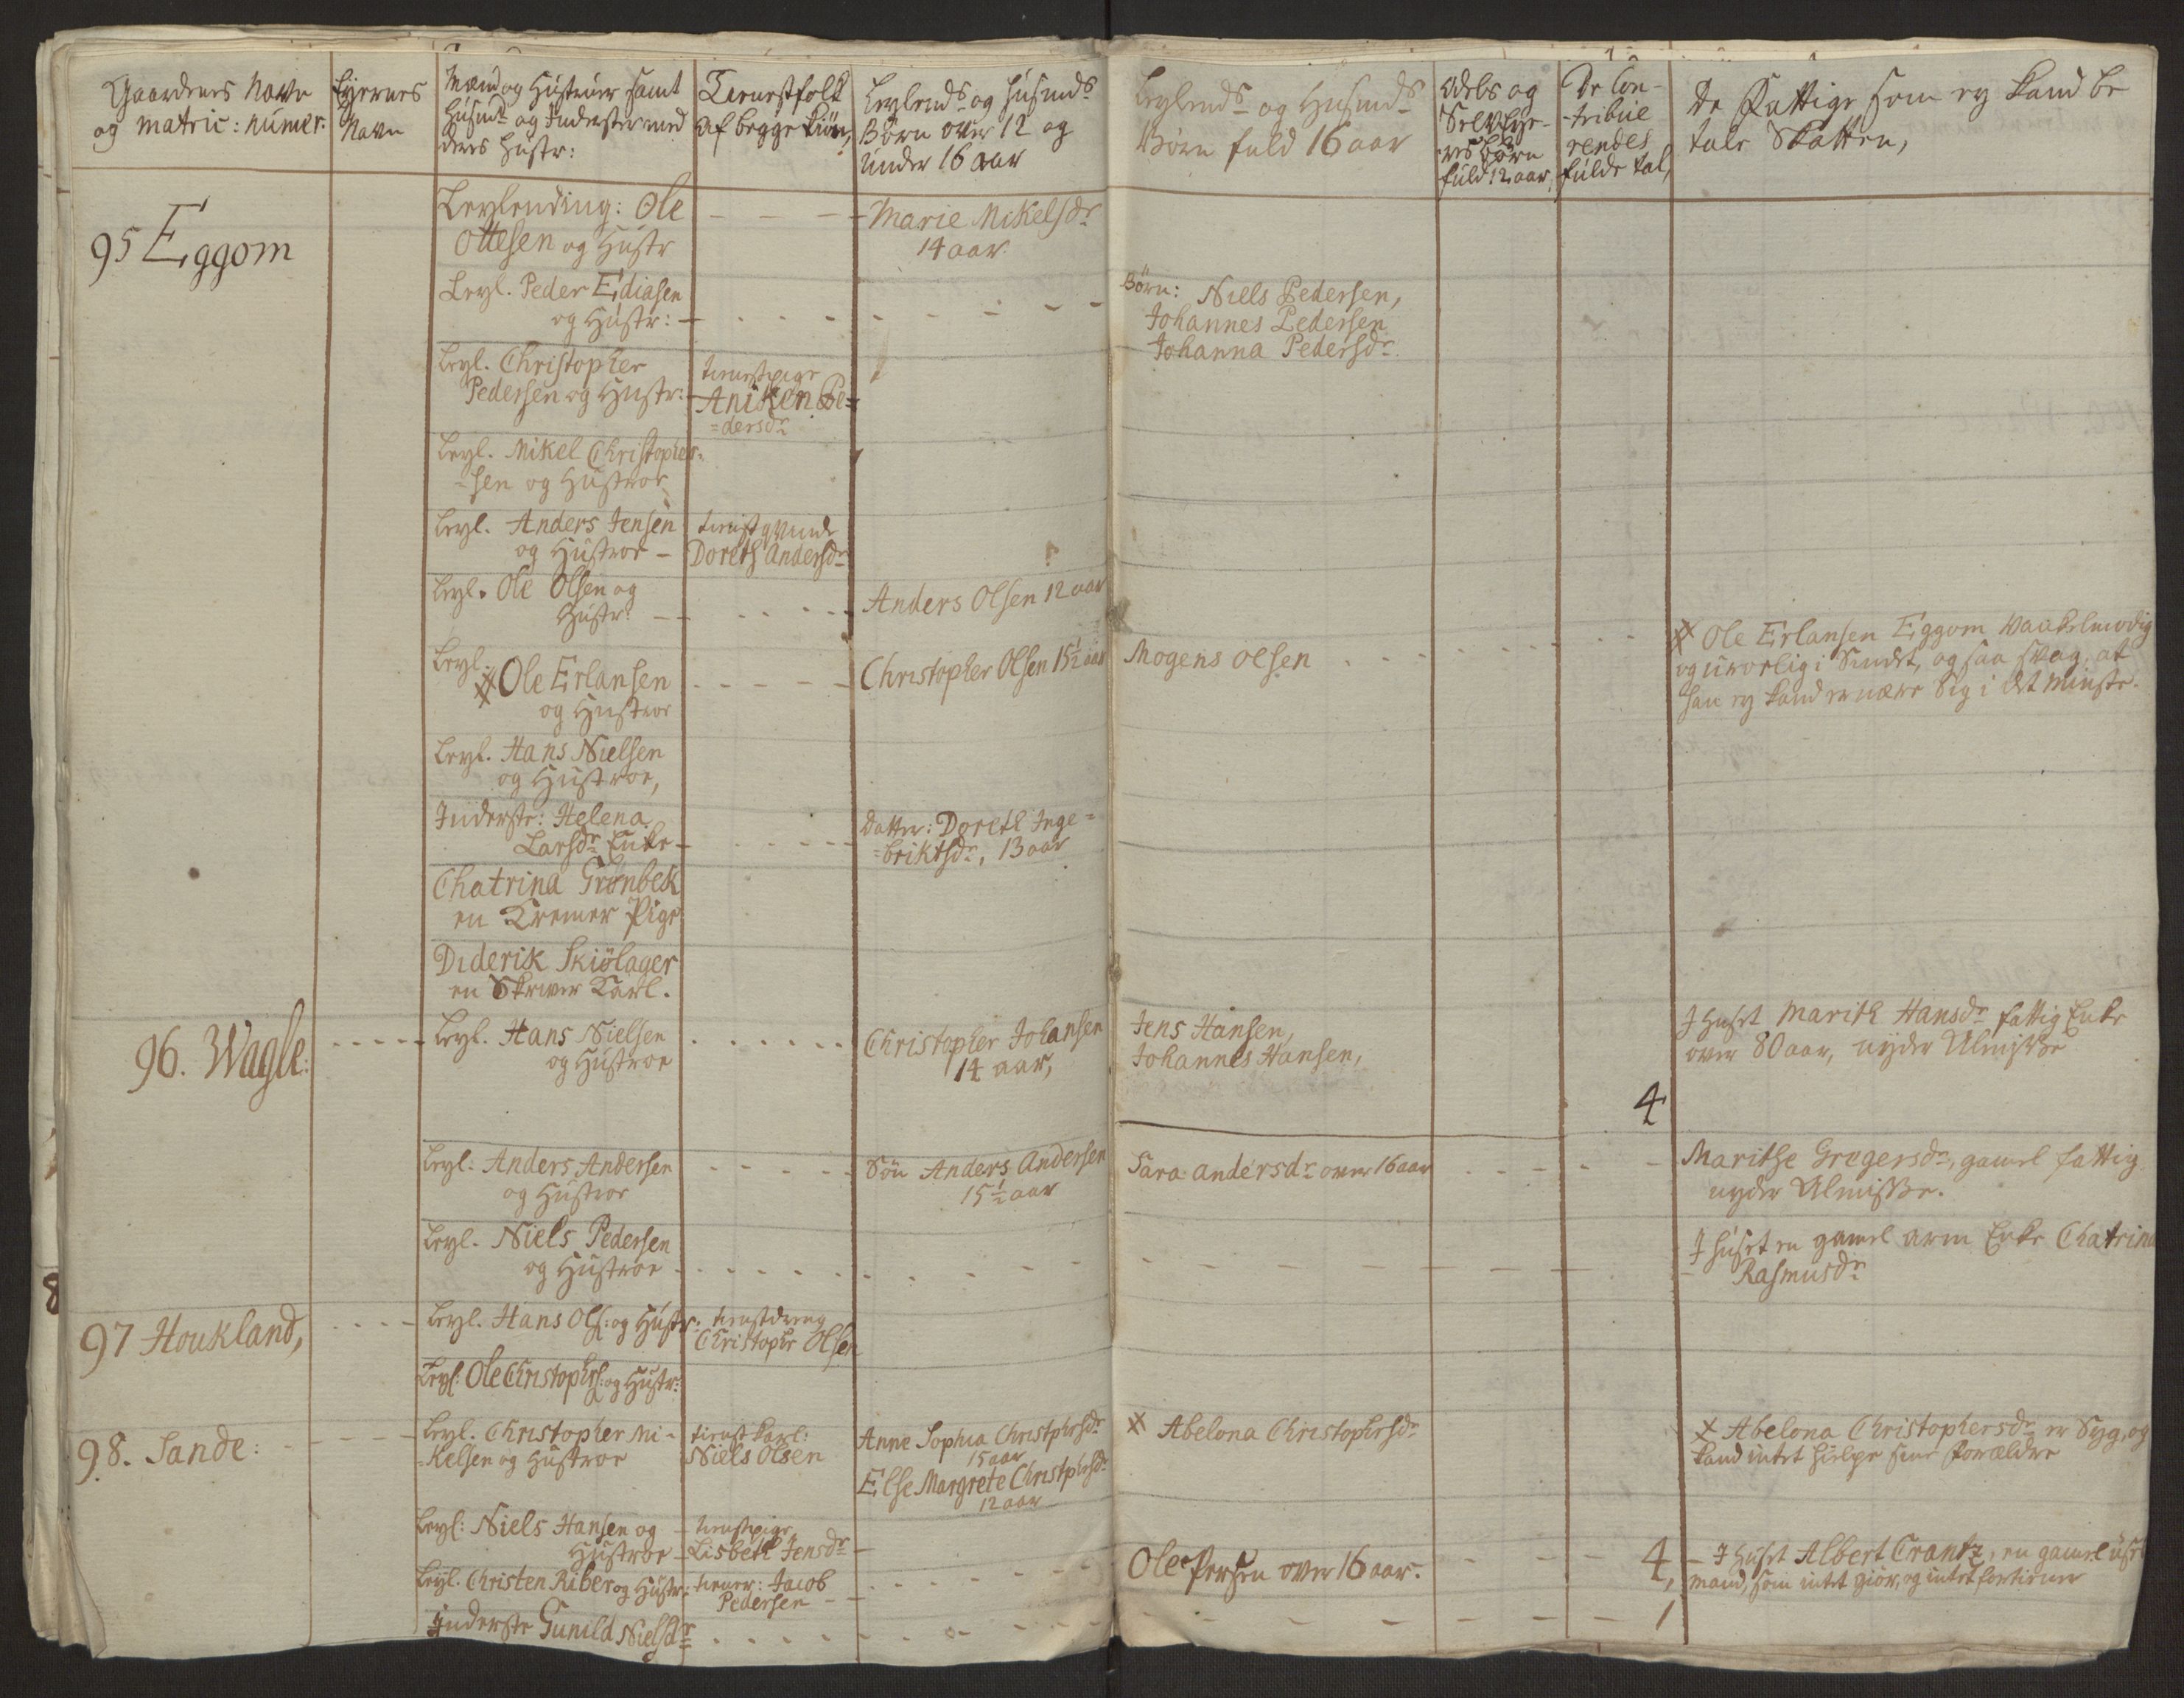 Gaardenes Navn
og matric: numer.
Eyernes
Navn
Mænd og Hustruer samt
Husmd og Inderster med
deres Hustr:
Tienestfolk
af begge kiön,
Leylends og Husmds
Börn over 12 og
under 16 aar
Leylends og Husmds
Börn fuld 16 aar
Adels og
Selveye-
res börn
fuld 12 aar,
De Con-
-tribue
rendes
fulde tal,
De Fattige som ey kand be
tale Skatten,
95 Eggom
Leylending: Ole
Ottesen og Hustr
Marie Mikelsdr
14 aar
Leyl. Peder Ediasen
og Hustr:
Börn: Niels Pedersen,
Johannes Pedersen
Johanna Pedersdr
Leyl. Christopher
Pedersen og Hustr:
tienestpige
Aniken Pe=
=dersdr
Leyl. Mikel Christopher=
=sen og Hustroe
Leyl. Anders Jensen
og Hustroe -
tienistqvinde
Doreth Andersdr
Leyl. Ole Olsen og
Hustr:
Anders Olsen 12 aar
Leyl.
# Ole Erlansen
og Hustroe
Christopher Olsen 15½ aar
Mogens Olsen
# Ole Erlansen Eggom Vankelmodig
og urorlig i Sindet, og saa svag, at
han ey kand ernære sig i det minste.
Leyl. Hans Nielsen
og Hustroe,
Inderste: Helena
Larsdr Enke
Datter: Doreth Inge=
=briktsdr, 13 aar
Chatrina Grönbek
en Kremer Pige
Diderik Skiölager
en Skriver Karl.
96. Wagle:
Leyl. Hans Nielsen
og Hustroe
Christopher Johansen
14 aar,
Jens Hansen,
Johannes Hansen,
4
I huset Marith Hansdr fattig Enke
over 80 aar, nyder Almisse
Leyl: Anders Andersen
og Hustroe
Sön Anders Andersen
15½ aar
Sara Andersdr over 16 aar
Marithe Gregersdr, gamel fattig
nyder Almisse.
Leyl. Niels Pedersen
og Hustroe
I huset en gamel arm Enke Chatrina
Rasmusdr
97 Houkland,
Leyl. Hans Ols: og Hustr:
tienestdreng
Christophr Olsen
Leyl: Ole Christophrs: og Hustr:
98. Sande:
Leyl. Christopher Mi-
-kelsen og Hustroe
tienest karl:
Niels Olsen
Anne Sophia Christphrsdr
15 aar
Else Margrete Christphrsdr
12 aar
# Abelona Christophrsdr
# Abelona Christophersdr er Syg, og
kand intet hielpe sine forældre
Leyl: Niels Hansen og
Hustroe
tienestpige
Lisbeth Jensdr
Leyl. Christen Riber og Hustr:
tiener: Jacob
Pedersen
Ole Persen over 16 aar.
4,
I huset Albert Crantz, en gamel usel
mand, som intet giör, og intet fortiener
Inderste Gunild Nielsdr
1
8